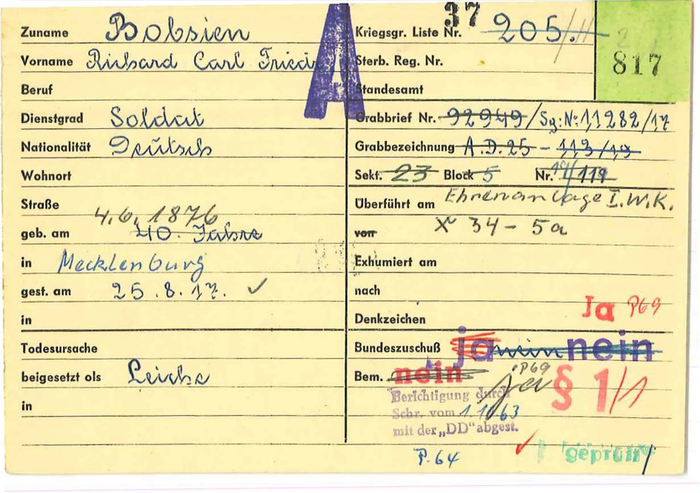 A
Zuname Bobsien
Vorname Richard Carl Friedr
Beruf
Dienstgrad Soldat
Nationalität Deutsch
Wohnort
Straße
4.6.1876
geb. am 40. Jahre
in Mecklenburg
gest. am 25.8.17. ✓
in
Todesursache
beigesetzt als Leiche
in
37
Kriegsgr. Liste Nr. 205
817
Sterb. Reg. Nr.
Standesamt
Grabbrief Nr. 92949/Sg:Nr.11282/17
Grabbezeichnung A.D.25 - 113/19
Sekt. 23 Block 5 Nr. 119
Überführt am Ehrenanlage I.W.K.
von X 34 - 5a
Exhumiert am
nach
Denkzeichen
Ja P69
Bundeszuschuß ja nein nein
Bem. nein P69 ja § 1/1
Berichtigung durch
Schr. vom 1.11.63
mit der „DD" abgest.
P.64
geprüft